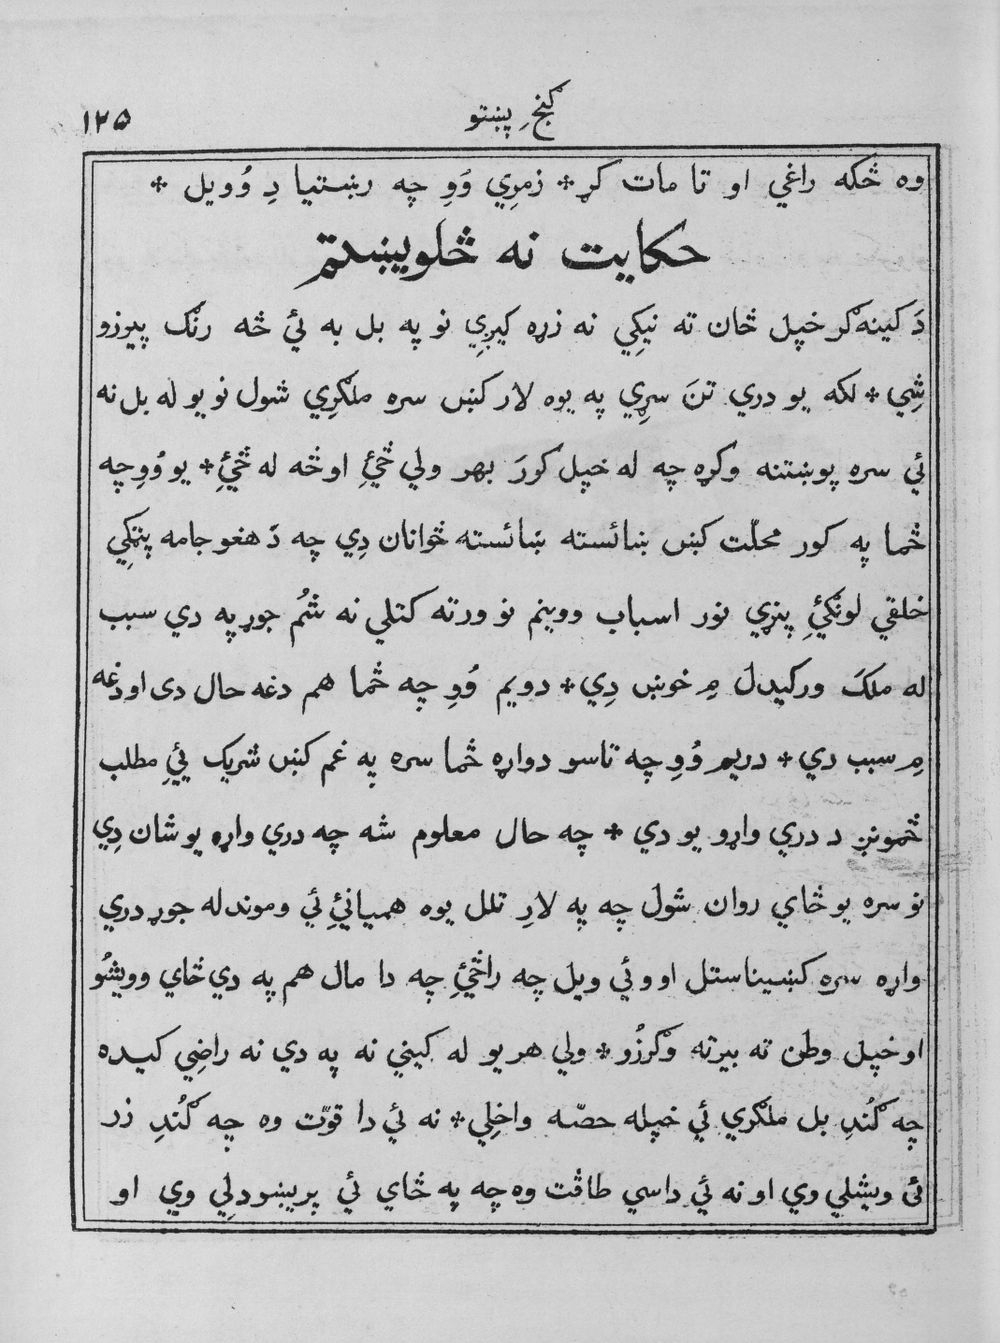 ګنجِ پښتو
۱۲۵
وه څکه راغي او تا مات کړ * زمرِي وَوِ چه رښتيا دِ وُويل *
حکايت نه څلويښتم
دَ کينه ګر خپل ځان ته نيکِي نه زړه کيږِي نو په بل به ئي څه رنګ پيرزو
شِي * لکه يو دري تنَ سړِي په يوه لار کښ سره ملګرِي شول نو يو له بل نه
ئي سره پوښتنه وکړه چه له خپل کورَ بهر ولي ځئِ او څه له ځئِ * يو وُوِ چه
ځما په کور محلّت کښ ښائسته ښائسته ځوانان دِي چه دَ هغو جامه پټکِي
خلقي لونګئِ پنړي نور اسباب ووينم نو ورته کتلي نه شُم جوړ په دي سبب
له ملکَ ورکيدل مِ خوښ دِي * دويم وُوِ چه ځما هم دغه حال دی او دغه
مِ سبب دي * دريم وُوِ چه تاسو دواړه ځما سره په غم کښ شريک يئِ مطلب
ځمونږ د دري واړو يو دي * چه حال معلوم شه چه دري واړه يو شان دِي
نو سره يو ځاي روان شول چه په لارِ تلل يوه هميانئِ ئي وموندله جوړ دري
واړه سره کښيناستل او وئي ويل چه راځئِ چه دا مال هم په دي ځاي وويشُو
او خپل وطن ته بيرته وګرزُو * ولي هر يو له کيني نه په دي نه راضِي کيده
چه ګُندِ بل ملګري ئي خپله حصّه واخلِي * نه ئي دا قوّت وه چه ګُندِ زر
ئي ويشلي وي او نه ئي داسي طاقت وه چه په ځاي ئي پريښودلِي وي او